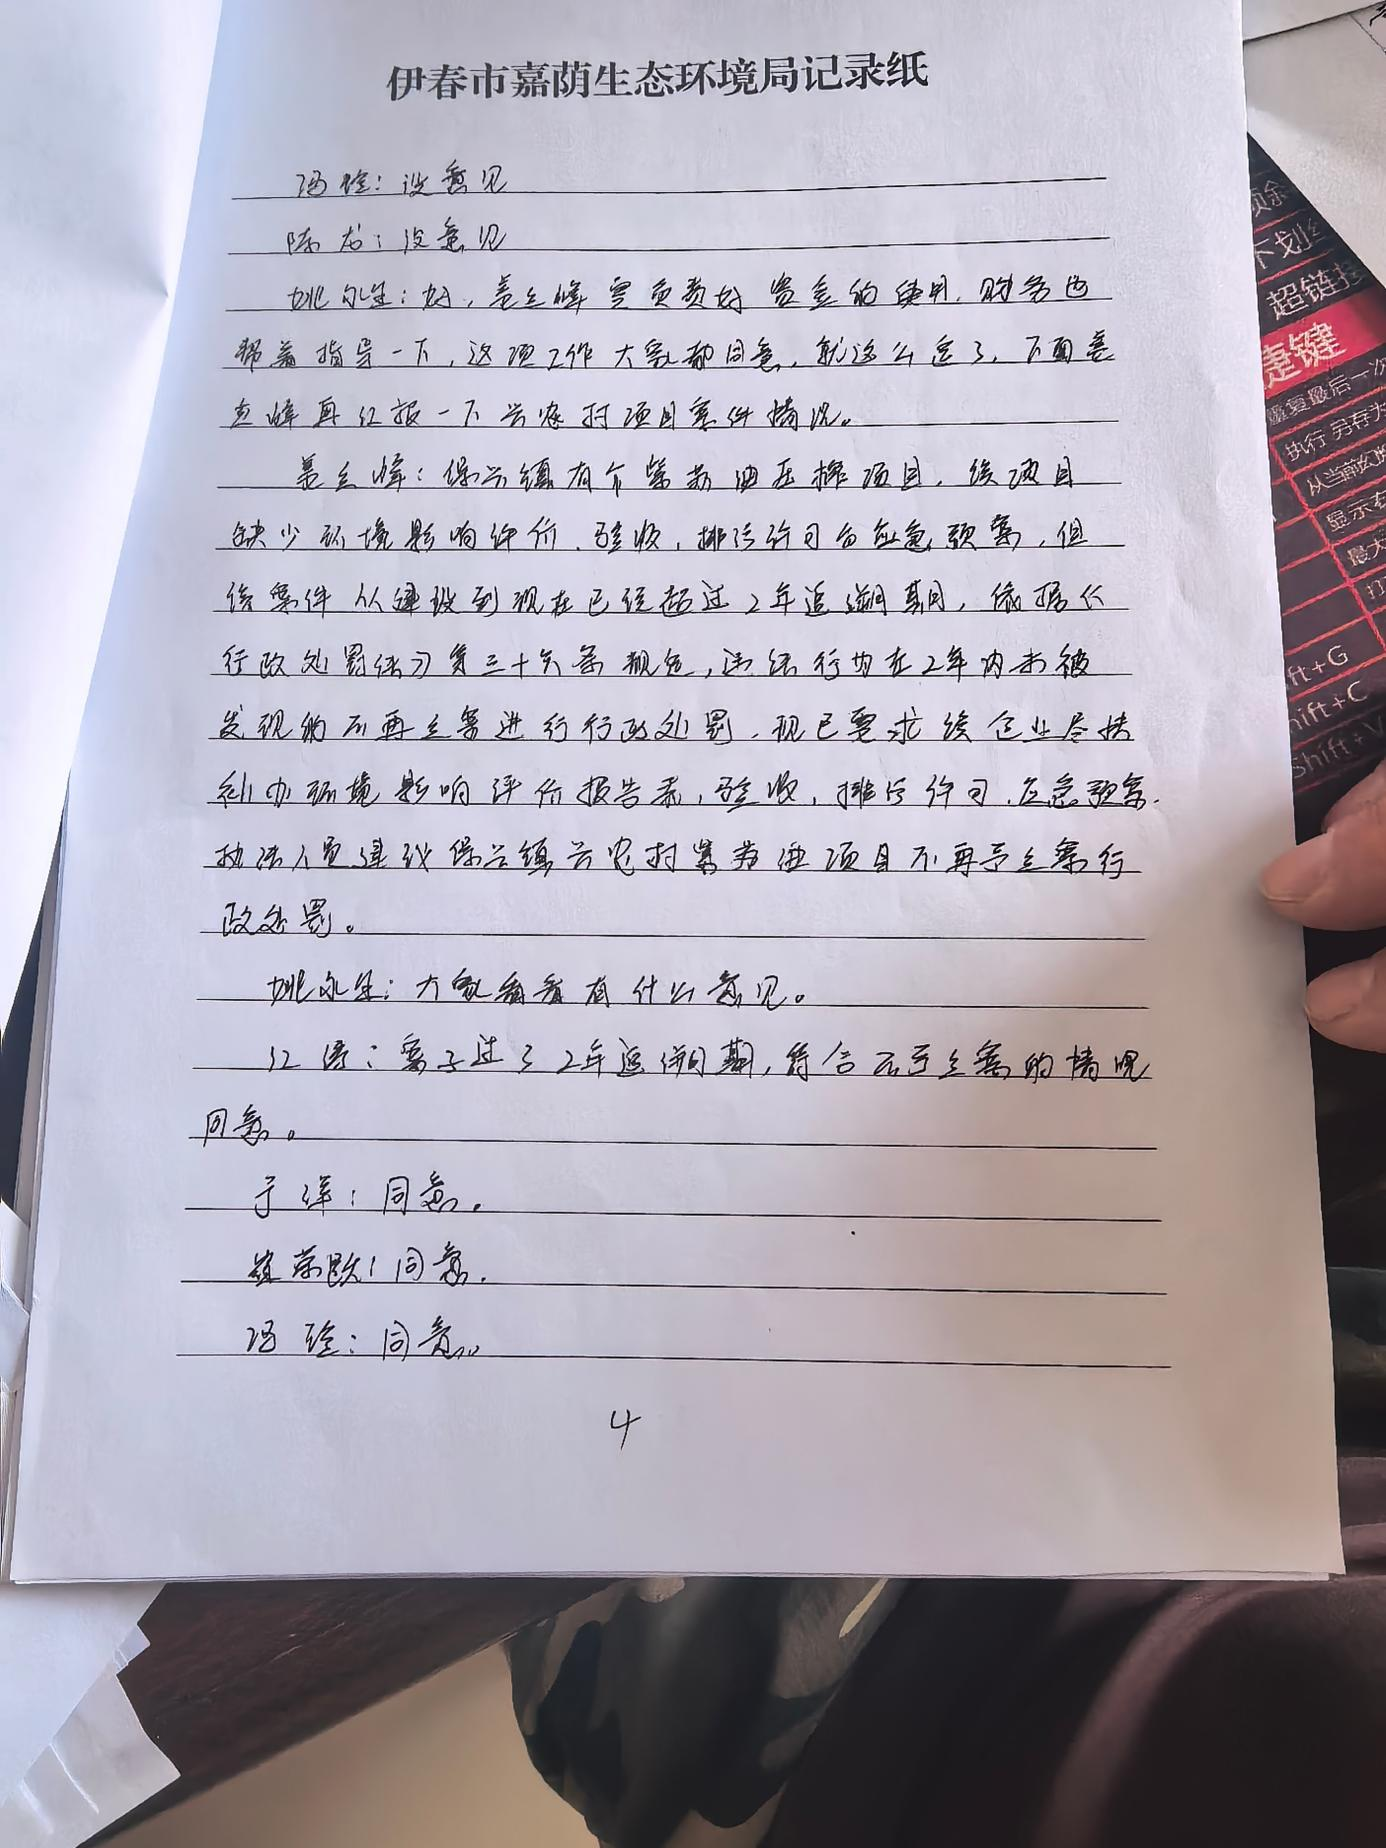 伊春市嘉荫生态环境局记录纸
冯玲:没意见
陈龙:没意见
姚永生:好,姜立峰要负责好资金的使用,财务也
帮着指导一下,这项工作大家都同意,就这么定了,下面姜
立峰再汇报一下兴农村项目案件情况。
姜立峰:保兴镇有个紫苏油压榨项目,该项目
缺少环境影响评价、验收,排污许可和应急预案,但
该案件从建设到现在已经超过2年追溯期,依据《
行政处罚法》第三十六条规定,违法行为在2年内未被
发现的不再立案进行行政处罚,现已要求该企业尽快
补办环境影响评价报告表,验收,排污许可、应急预案.
执法人员建议保兴镇兴农村紫苏油项目不再予立案行
政处罚。
姚永生:大家看看有什么意见。
江涛:案子过了2年追溯期,符合不予立案的情况
同意。
于洋:同意。
崔荣:同意.
冯玲:同意。
4
顶余
下划线
超链接
捷键
重复最后一次
执行 另存为
显示
最大
ft+G
hift+C
Shift+V